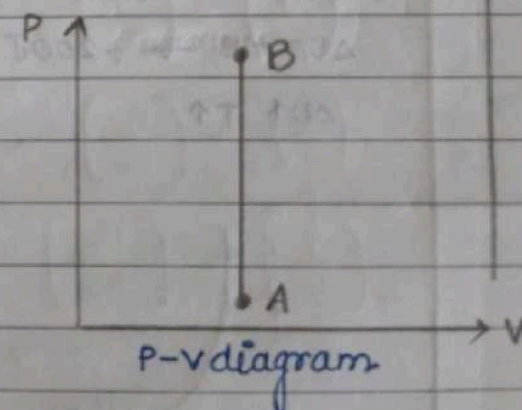 P
B
A
V
P-V diagram